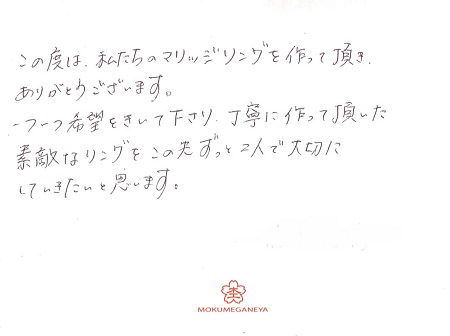 この度は、私たちのマリッジリングを作って頂き、
ありがとうございます。
一つ一つ希望をきいて下さり、丁寧に作って頂いた
素敵なリングをこの先ずっと2人で大切に
していきたいと思います。
MOKUMEGANEYA